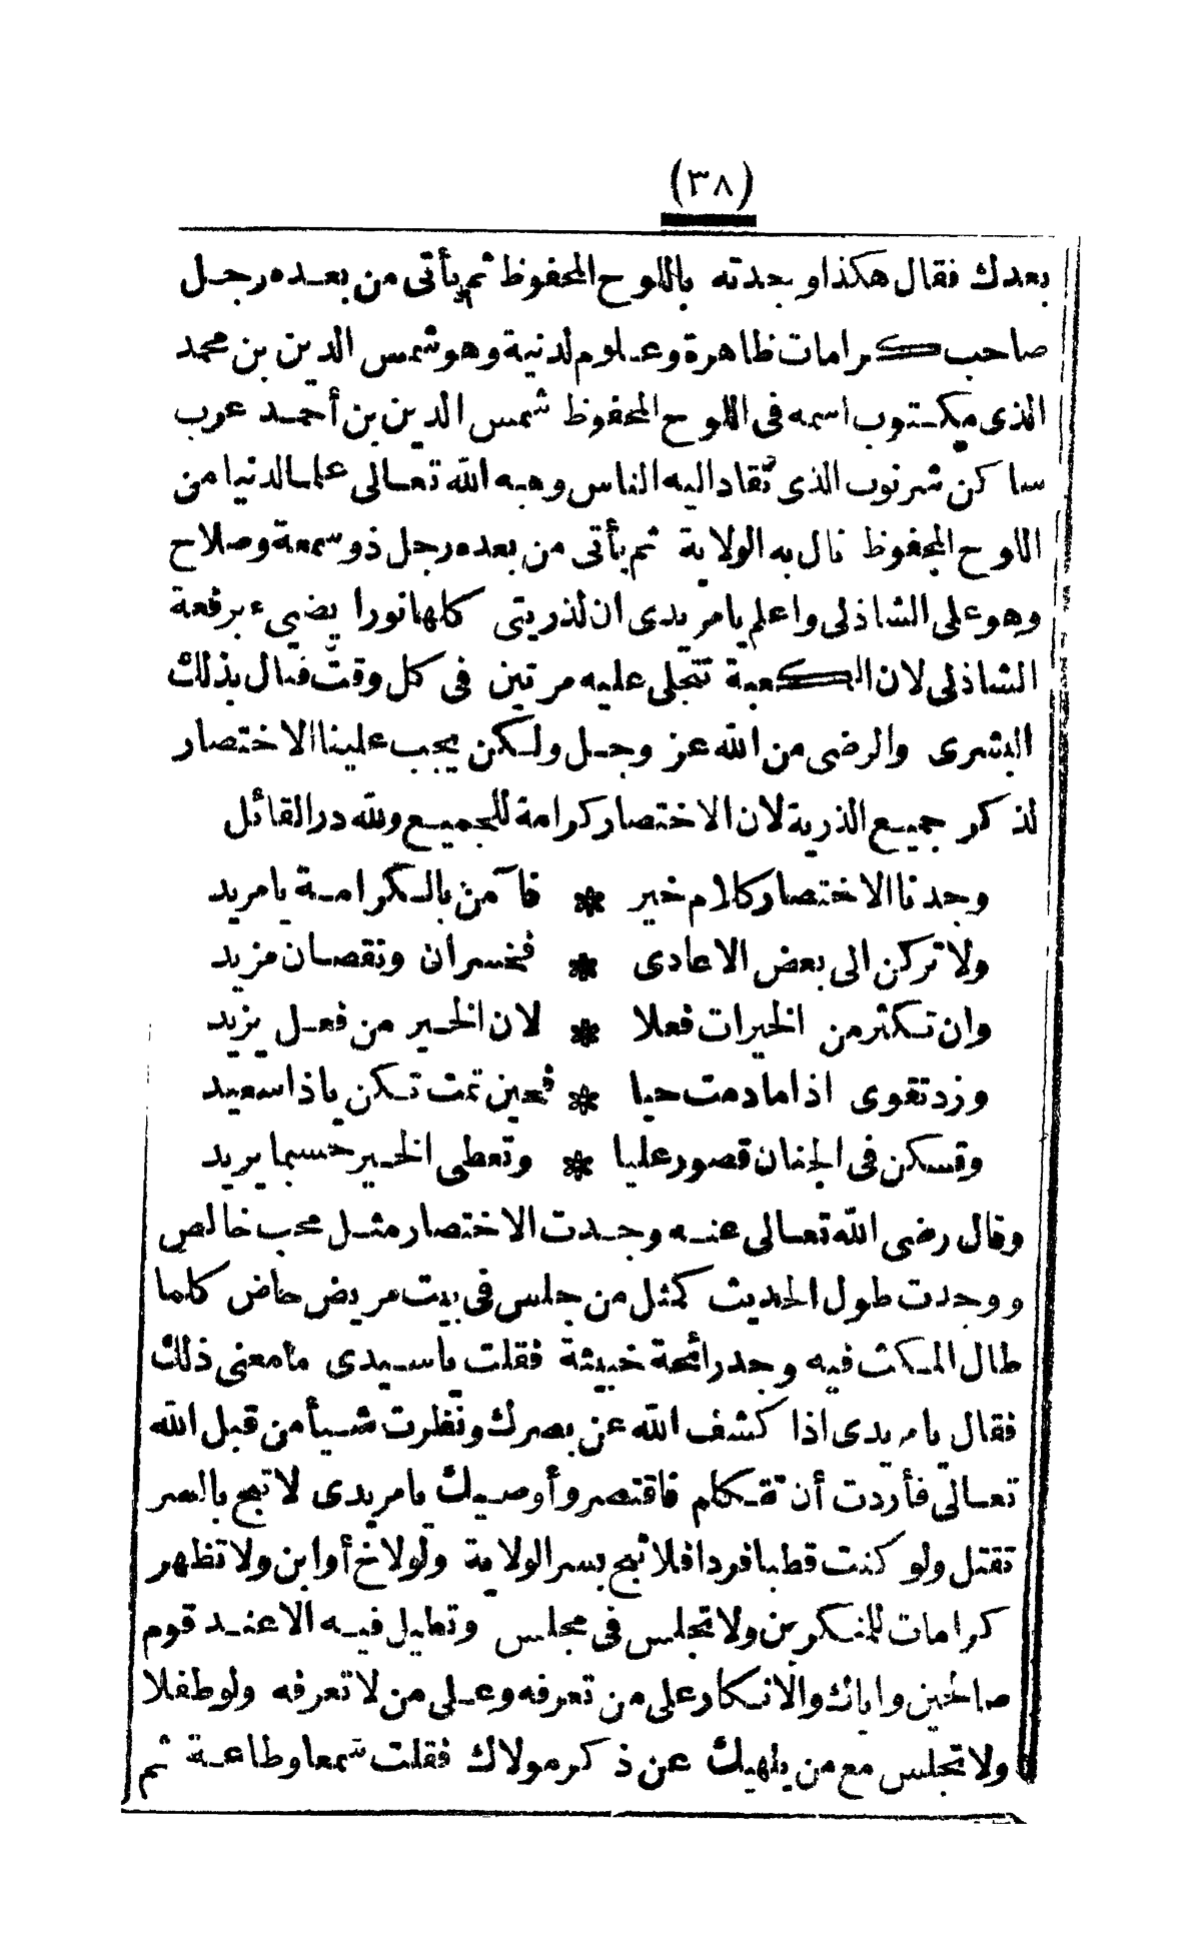 (٣٨)
بعدك فقال هكذا وجدته باللوح المحفوظ ثم يأتى من بعده رجل
صاحب كرامات ظاهرة وعلوم لدنية وهو شمس الدين بن محمد
الذى مكتوب اسمه فى اللوح المحفوظ شمس الدين بن أحمد عرب
ساكن شرنوب الذى تقاد اليه الناس وهبه الله تعالى علما لدنيا من
اللوح المحفوظ نال به الولاية ثم يأتى من بعده رجل ذو سمعة وصلاح
وهو على الشاذلى واعلم يا مريدى ان لذريتى كلها نورا يضىء برفعة
الشاذلى لان الكعبة تتجلى عليه مرتين فى كل وقت فنال بذلك
البشرى والرضى من الله عز وجل ولكن يجب علينا الاختصار
لذكر جميع الذرية لان الاختصار كرامة للجميع ولله در القائل
وجدنا الاختصار كلام خير * فآمن بالكرامة يا مريد
ولا تركن الى بعض الاعادى * فخسران ونقصان مزيد
وان تكثر من الخيرات فعلا * لان الخير من فعل يزيد
وزد تقوى اذا ما دمت حيا * فحين تمت تكن يا ذا سعيد
وتسكن فى الجنان قصور عليا * وتعطى الخير حسبما يريد
وقال رضى الله تعالى عنه وجدت الاختصار مثل محب خالص
ووجدت طول الحديث كمثل من جلس فى بيت مريض حاض كلما
طال المكث فيه وجد رائحة خبيثة فقلت يا سيدى ما معنى ذلك
فقال يا مريدى اذا كشف الله عن بصرك ونظرت شيأ من قبل الله
تعالى فأردت أن تتكلم فاقتصر وأوصيك يا مريدى لا تبح بالسر
تقتل ولو كنت قطبا فردا فلا تبح بسر الولاية ولو لاخ أو ابن ولا تظهر
كرامات للمنكرين ولا تجلس فى مجلس وتطيل فيه الا عند قوم
صالحين واياك والانكار على من تعرفه وعلى من لا تعرفه ولو طفلا
ولا تجلس مع من يلهيك عن ذكر مولاك فقلت سمعا وطاعة ثم